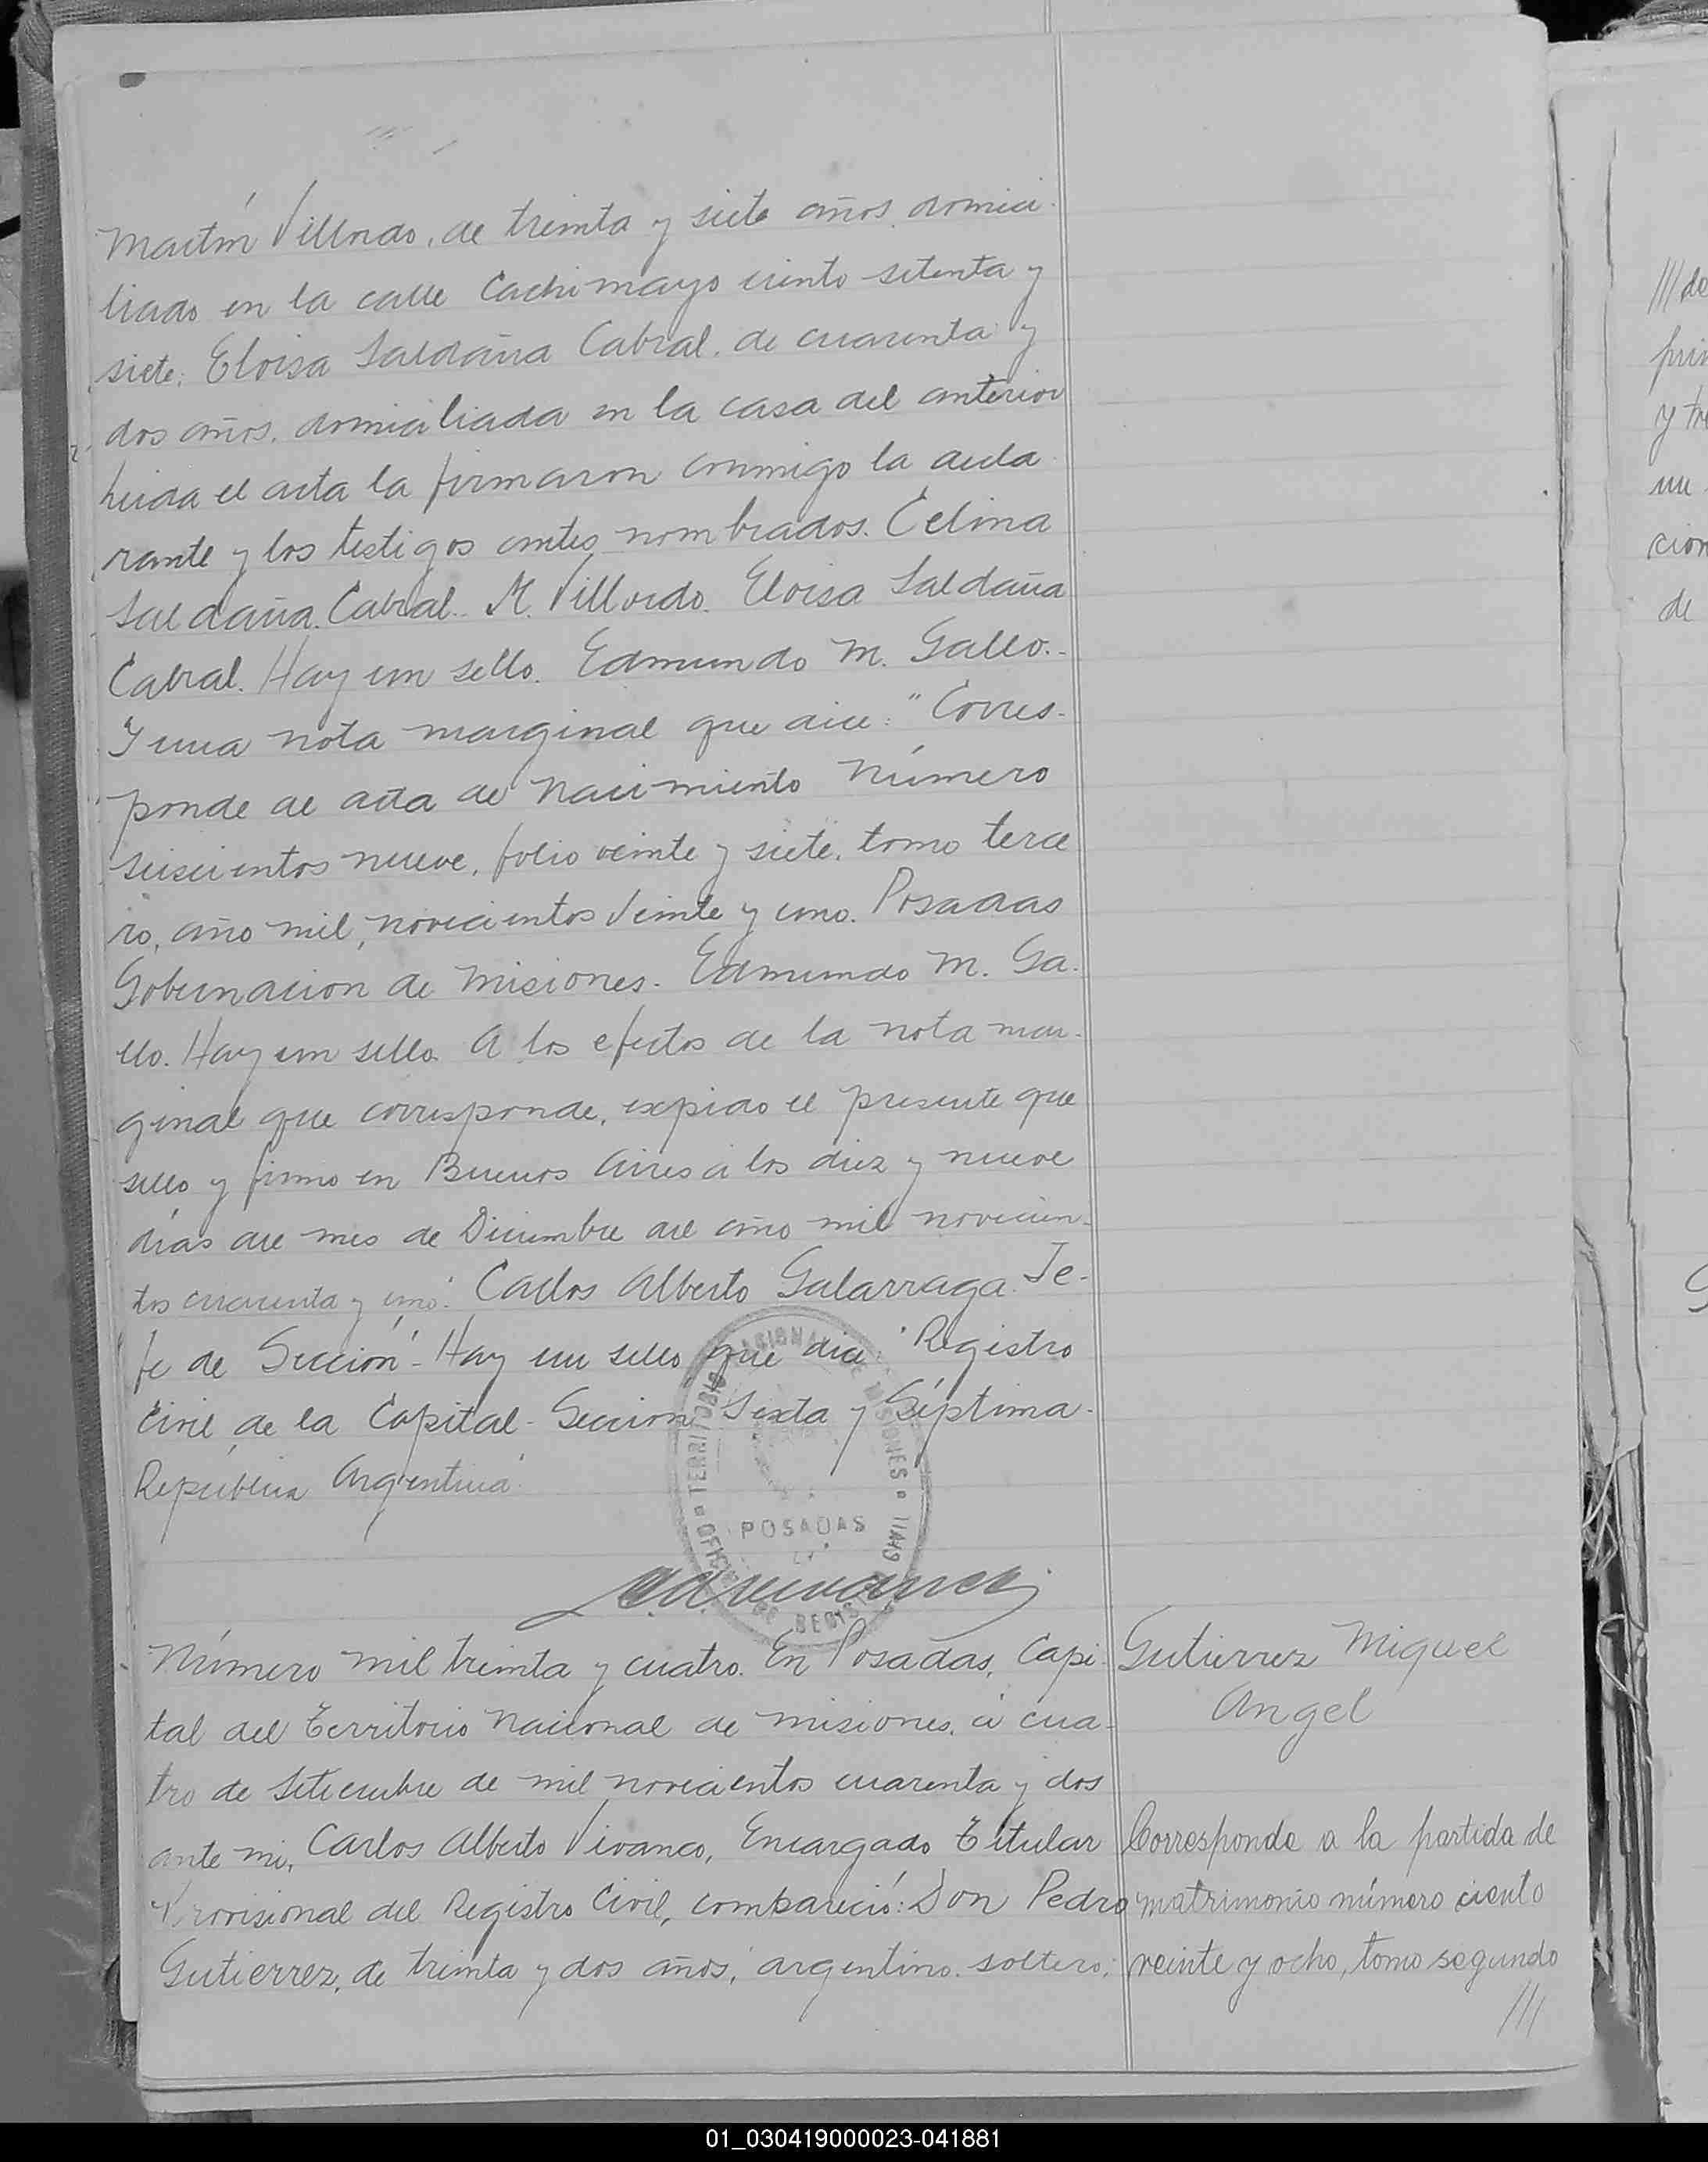 Martín Villordo, de treinta y siete años, domici-
liado en la calle Cachimayo ciento setenta y
siete; Eloisa Saldaña Cabral, de cuarenta y
dos años, domiciliada en la casa del anterior
leida el acta la firmaron conmigo la decla
rante y los testigos antes nombrados. Celina
Saldaña Cabral. M. Villordo. Eloisa Saldaña
Cabral. Hay un sello. Edmundo M. Gallo.-
Y una nota marginal que dice: "Corres-
ponde al acta de nacimiento número
seiscientos nueve, folio veinte y siete, tomo terce
ro, año mil novecientos veinte y uno. Posadas
Gobernación de Misiones. Edmundo M. Ga-
llo. Hay un sello. A los efectos de la nota mar-
ginal que corresponde, expido el presente que
sello y firmo en Buenos Aires a los diez y nueve
días del mes de Diciembre del año mil novecien-
tos cuarenta y uno". Carlos Alberto Galarraga. Je-
fe de Sección"- Hay un sello que dice: "Registro
Civil de la Capital - Sección Sexta y Séptima -
República Argentina"
TERRITORIO NACIONAL DE MISIONES
POSADAS
Número mil treinta y cuatro. En Posadas, Capi-
tal del Territorio Nacional de Misiones, a cua-
tro de Setiembre de mil novecientos cuarenta y dos
ante mi, Carlos Alberto Vivanco, Encargado Titular
Provisional del Registro Civil, compareció: Don Pedro
Gutierrez, de treinta y dos años, argentino, soltero,
Gutierrez Miguel
Angel
Corresponde a la partida de
matrimonio número ciento
veinte y ocho, tomo segundo
///
/// de
y tre
un
cion
de
01_030419000023-041881